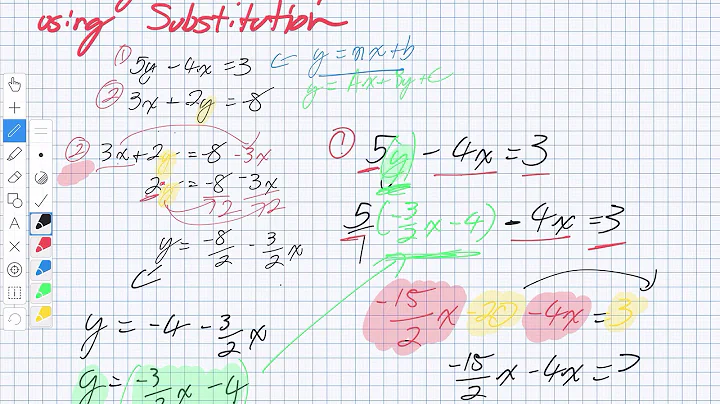 using Substitution
① 5y - 4x = 3 ← y = mx + b
y = Ax + By + C
② 3x + 2y = -8
② 3x + 2y = -8 - 3x
2y = -8 - 3x
÷2 ÷2
y = -8/2 - 3/2 x
y = -4 - 3/2 x
y = (-3/2 x - 4
① 5(y) - 4x = 3
5/1 (-3/2 x - 4) - 4x = 3
-15/2 x - 20 - 4x = 3
-15/2 x - 4x =